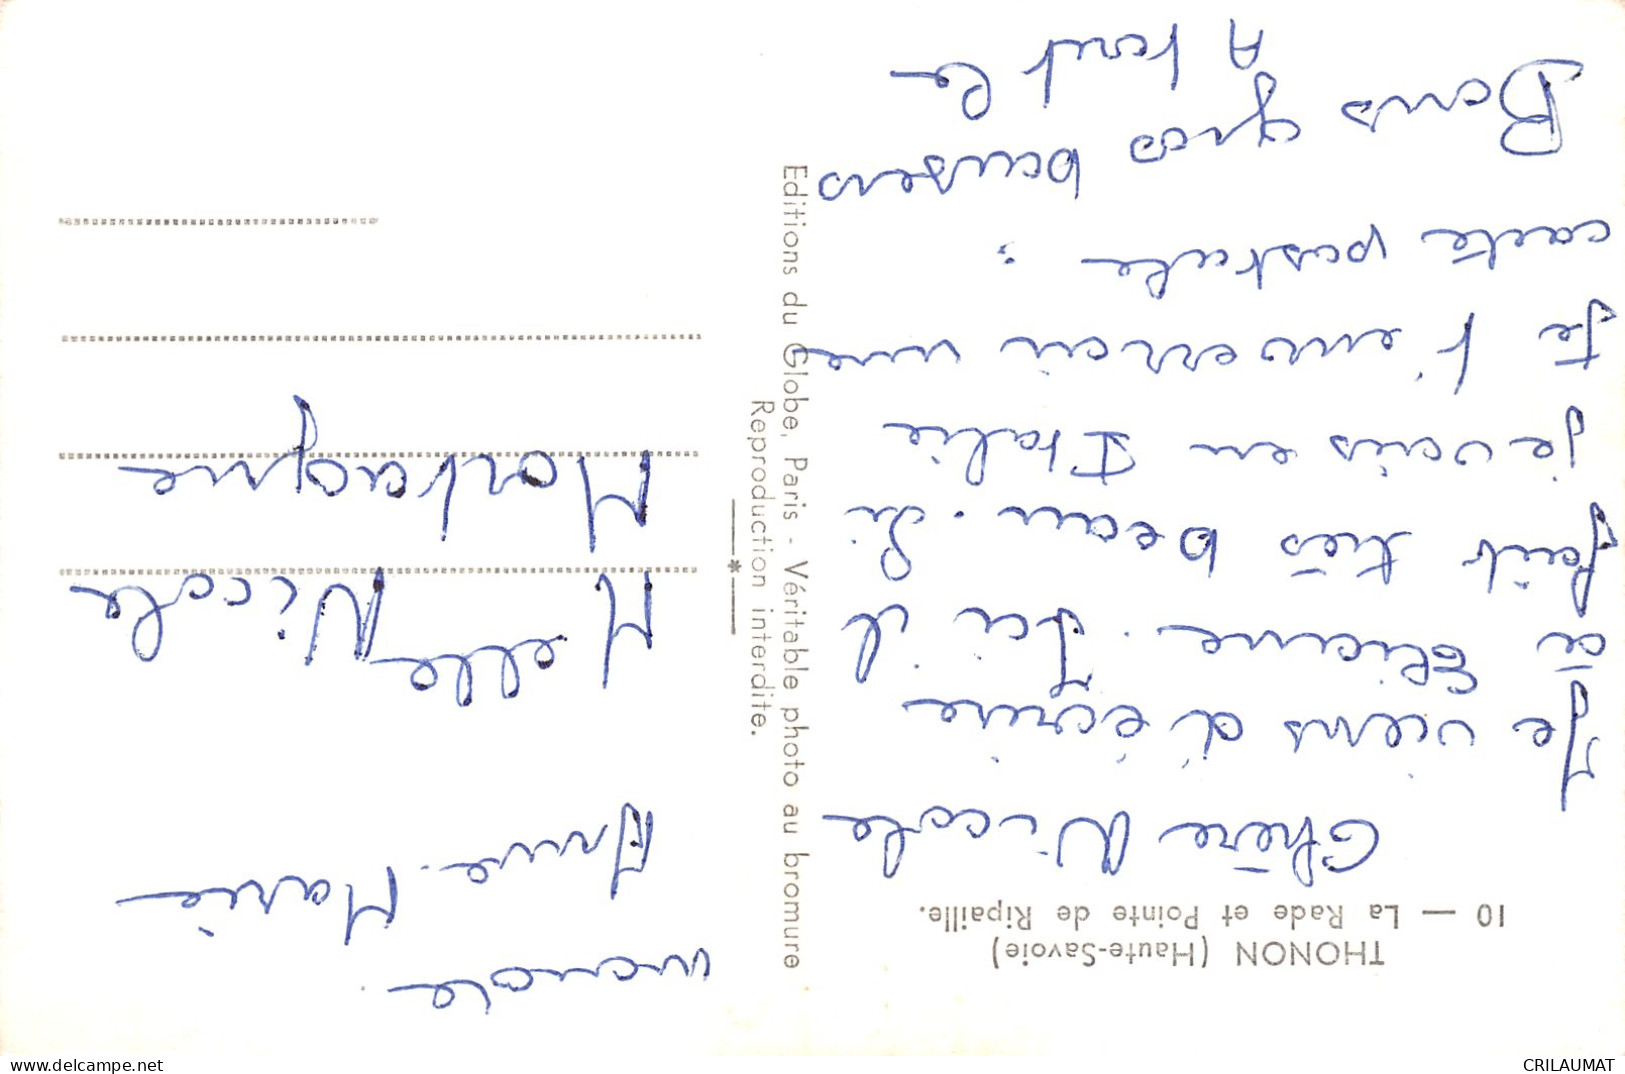 THONON (Haute-Savoie)
10 — La Rade et Pointe de Ripaille.
Chère Nicole
Je viens d'écrire
à Eliane. Ici il
fait très beau. Si
je vais en Italie
je t'enverrai une
carte postale.
Bons gros baisers
A tout le
monde.
Anne-Marie
Melle Nicole
Montagne
Editions du Globe, Paris - Véritable photo au bromure
Reproduction interdite.
delcampe.net
CRILAUMAT